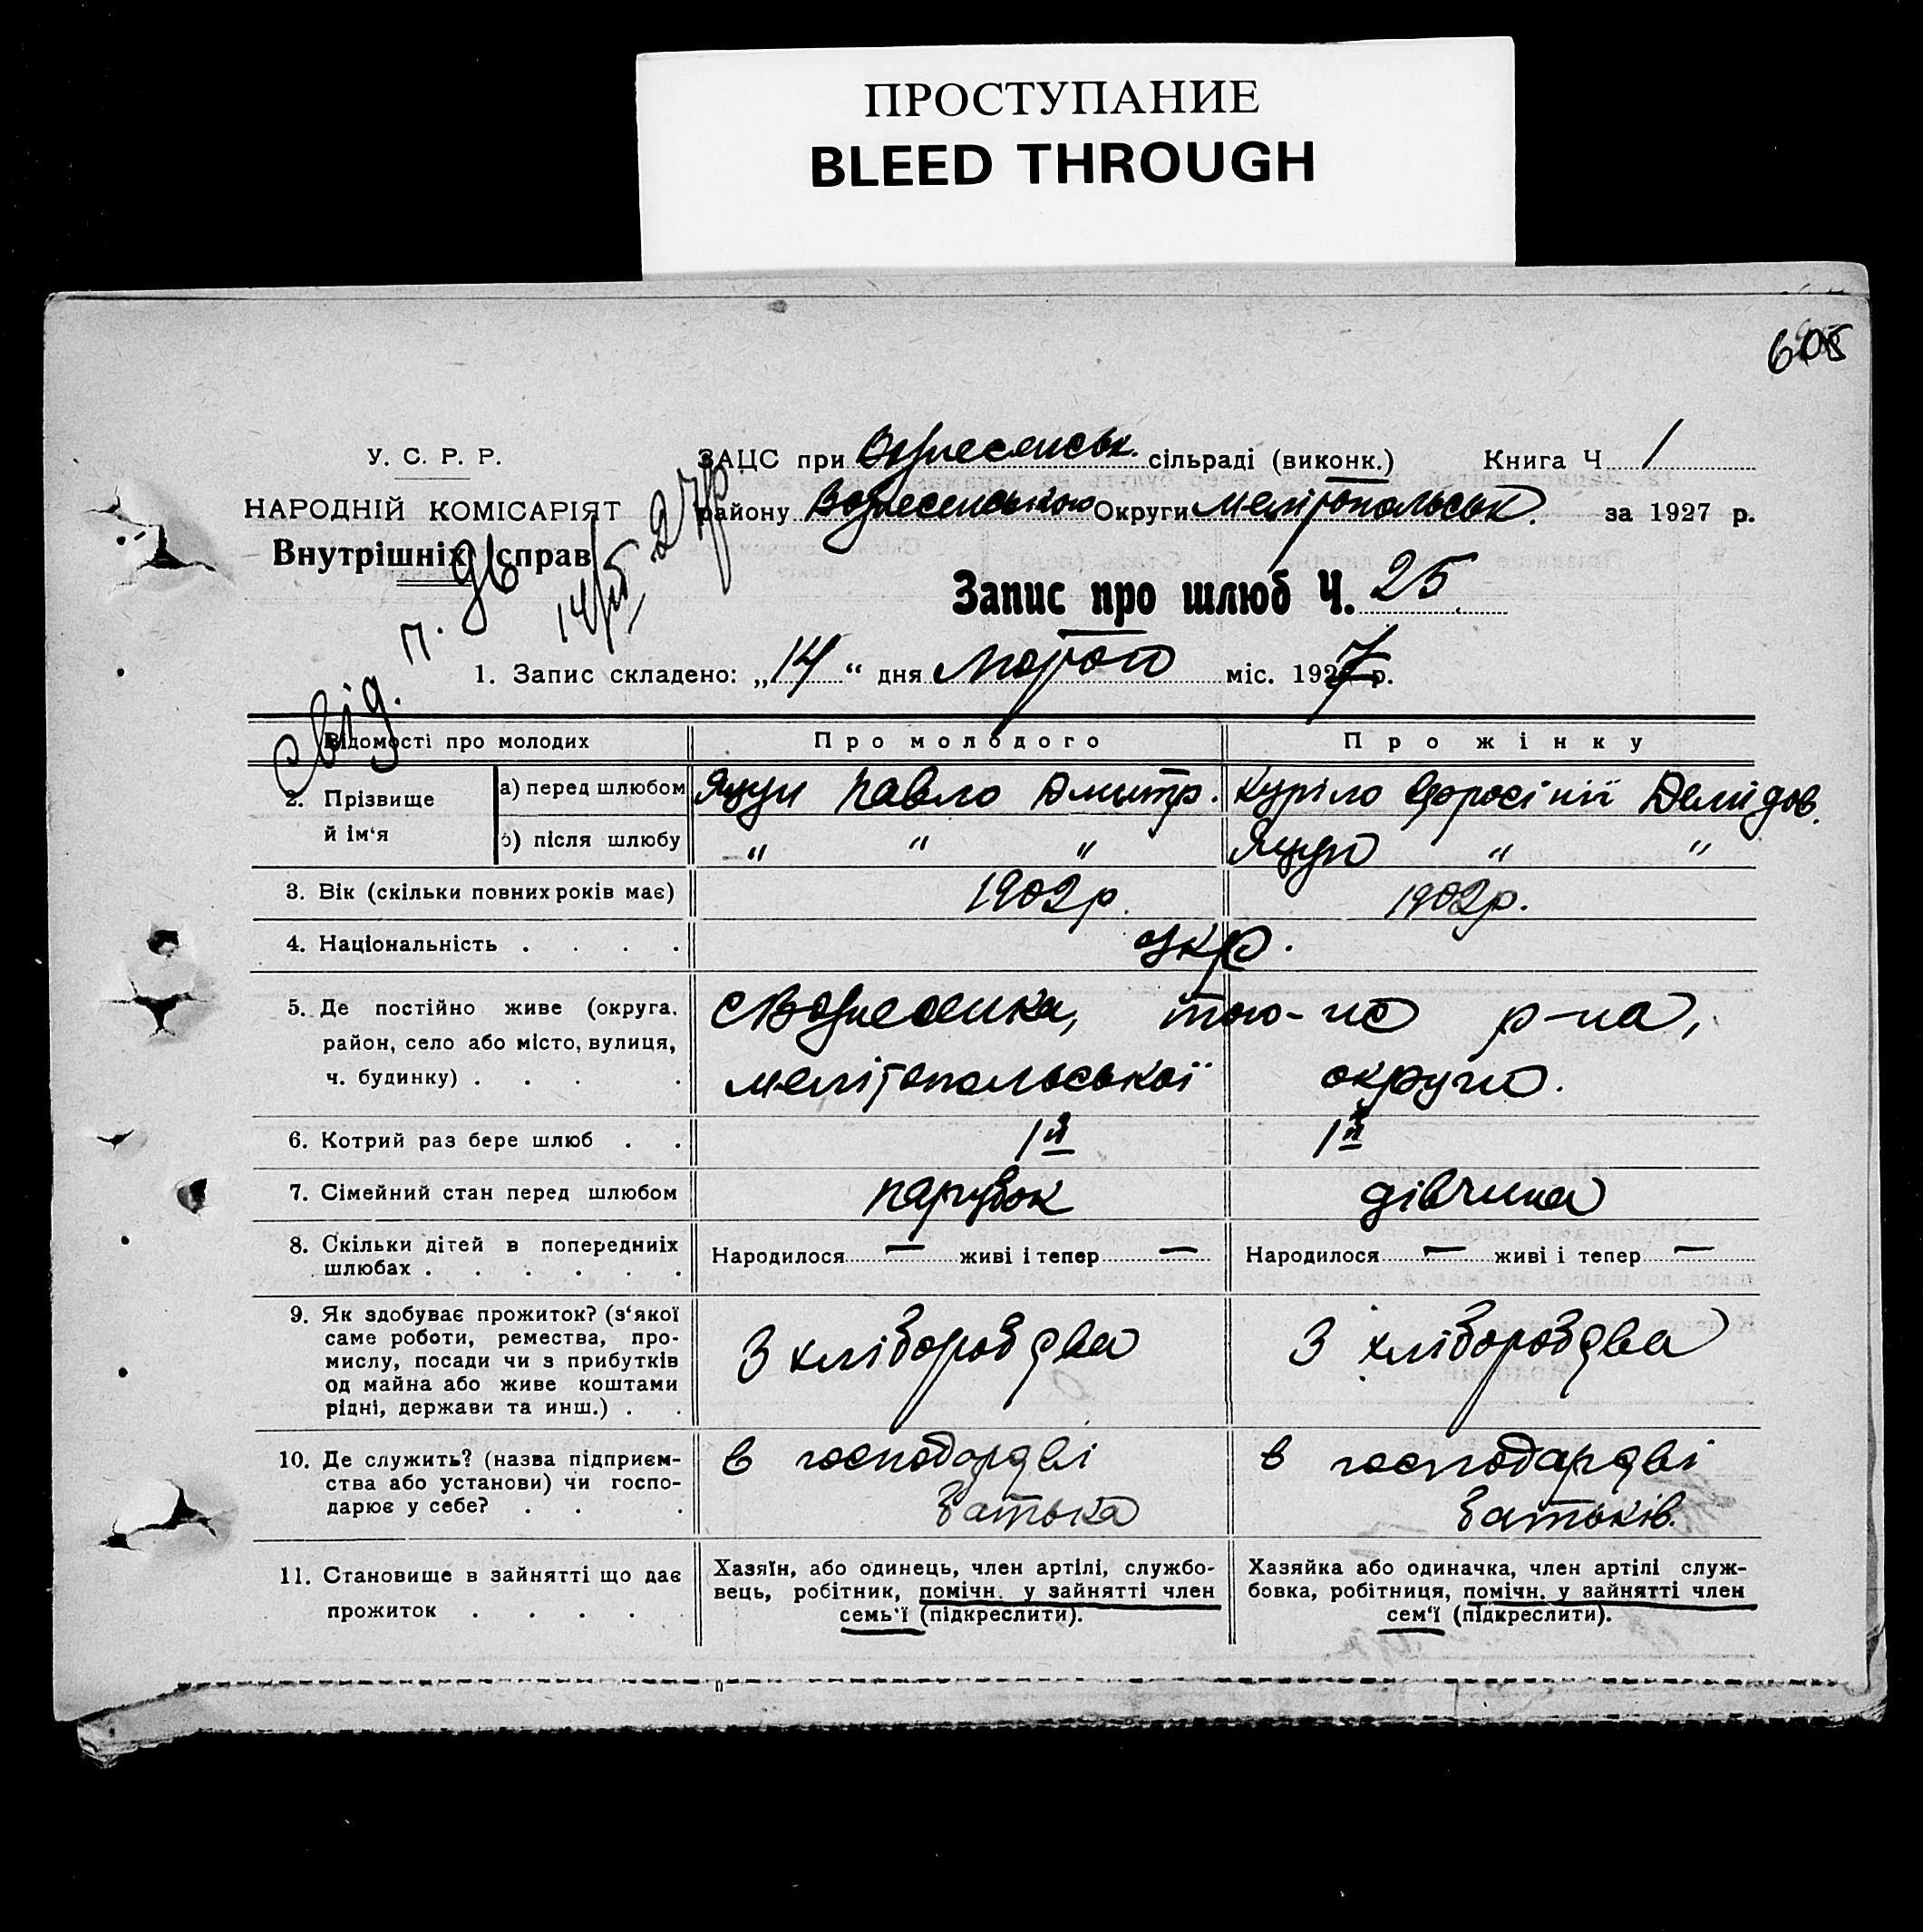 ПРОСТУПАНИЕ
BLEED THROUGH
605
У. С. Р. Р.
НАРОДНІЙ КОМІСАРІЯТ
Внутрішніх справ
ЗАЦС при Вознесенськ. сільраді (виконк.) Книга Ч. 1
району Вознесенського Округи Мелітопольськ. за 1927 р.
Запис про шлюб Ч. 25.
1. Запис складено: „14“ дня міс. 1927 р.
Відомості про молодих Про молодого Про жінку
2. Прізвище й ім‘я
а) перед шлюбом Яцун Павло Дмитр. Куріло Єфросінії Демидов.
б) після шлюбу „ „ „ Яцун „ „
3. Вік (скільки повних років має) 1902р. 1902р.
4. Національність . . . . укр.
5. Де постійно живе (округа, район, село або місто, вулиця, ч. будинку) . . . .
с Вознесенка, того-ж р-на,
Мелітопольської округи.
6. Котрий раз бере шлюб . . 1й 1й
7. Сімейний стан перед шлюбом парубок дівчина
8. Скільки дітей в попередниіх шлюбах . . . . . .
Народилося — живі і тепер — Народилося — живі і тепер —
9. Як здобуває прожиток? (з‘якої
саме роботи, ремества, про-
мислу, посади чи з прибутків
од майна або живе коштами
рідні, держави та инш.) . .
З хліборобдва З хліборобдва
10. Де служить? (назва підприєм-
ства або установи) чи госпо-
дарює у себе? . . .
в господардві в господардві
батька батьків.
11. Становище в зайнятті що дає
прожиток . . . . .
Хазяїн, або одинець, член артілі, службо-
вець, робітник, помічн. у зайнятті член
семь‘ї (підкреслити).
Хазяйка або одиначка, член артілі служ-
бовка, робітниця, помічн. у зайнятті член
сем‘ї (підкреслити).